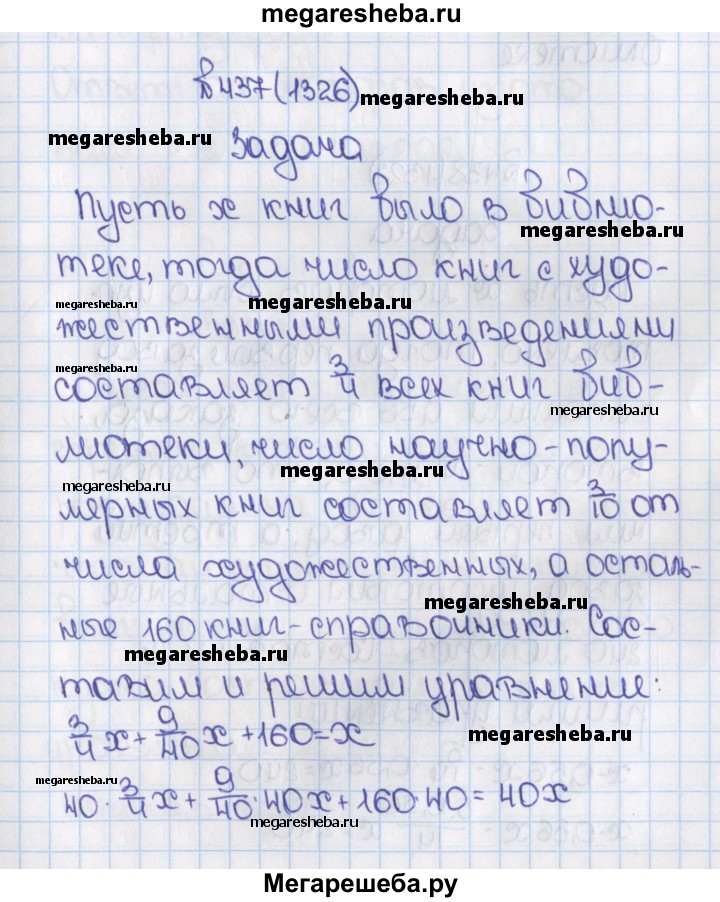 megaresheba.ru
№437(1326) megaresheba.ru
megaresheba.ru Задача
Пусть x книг было в библио-
megaresheba.ru
теке, тогда число книг с худо-
megaresheba.ru megaresheba.ru
жественными произведениями
megaresheba.ru
составляет 3/4 всех книг биб-
megaresheba.ru
лиотеки, число научно-попу-
megaresheba.ru megaresheba.ru
лярных книг составляет 3/10 от
числа художественных, а осталь-
megaresheba.ru
ные 160 книг-справочники. Сос-
megaresheba.ru
тавим и решим уравнение:
3/4 x + 9/40 x + 160 = x
megaresheba.ru
megaresheba.ru
40 · 3/4 x + 9/40 · 40x + 160 · 40 = 40x
megaresheba.ru
Мегарешеба.ру